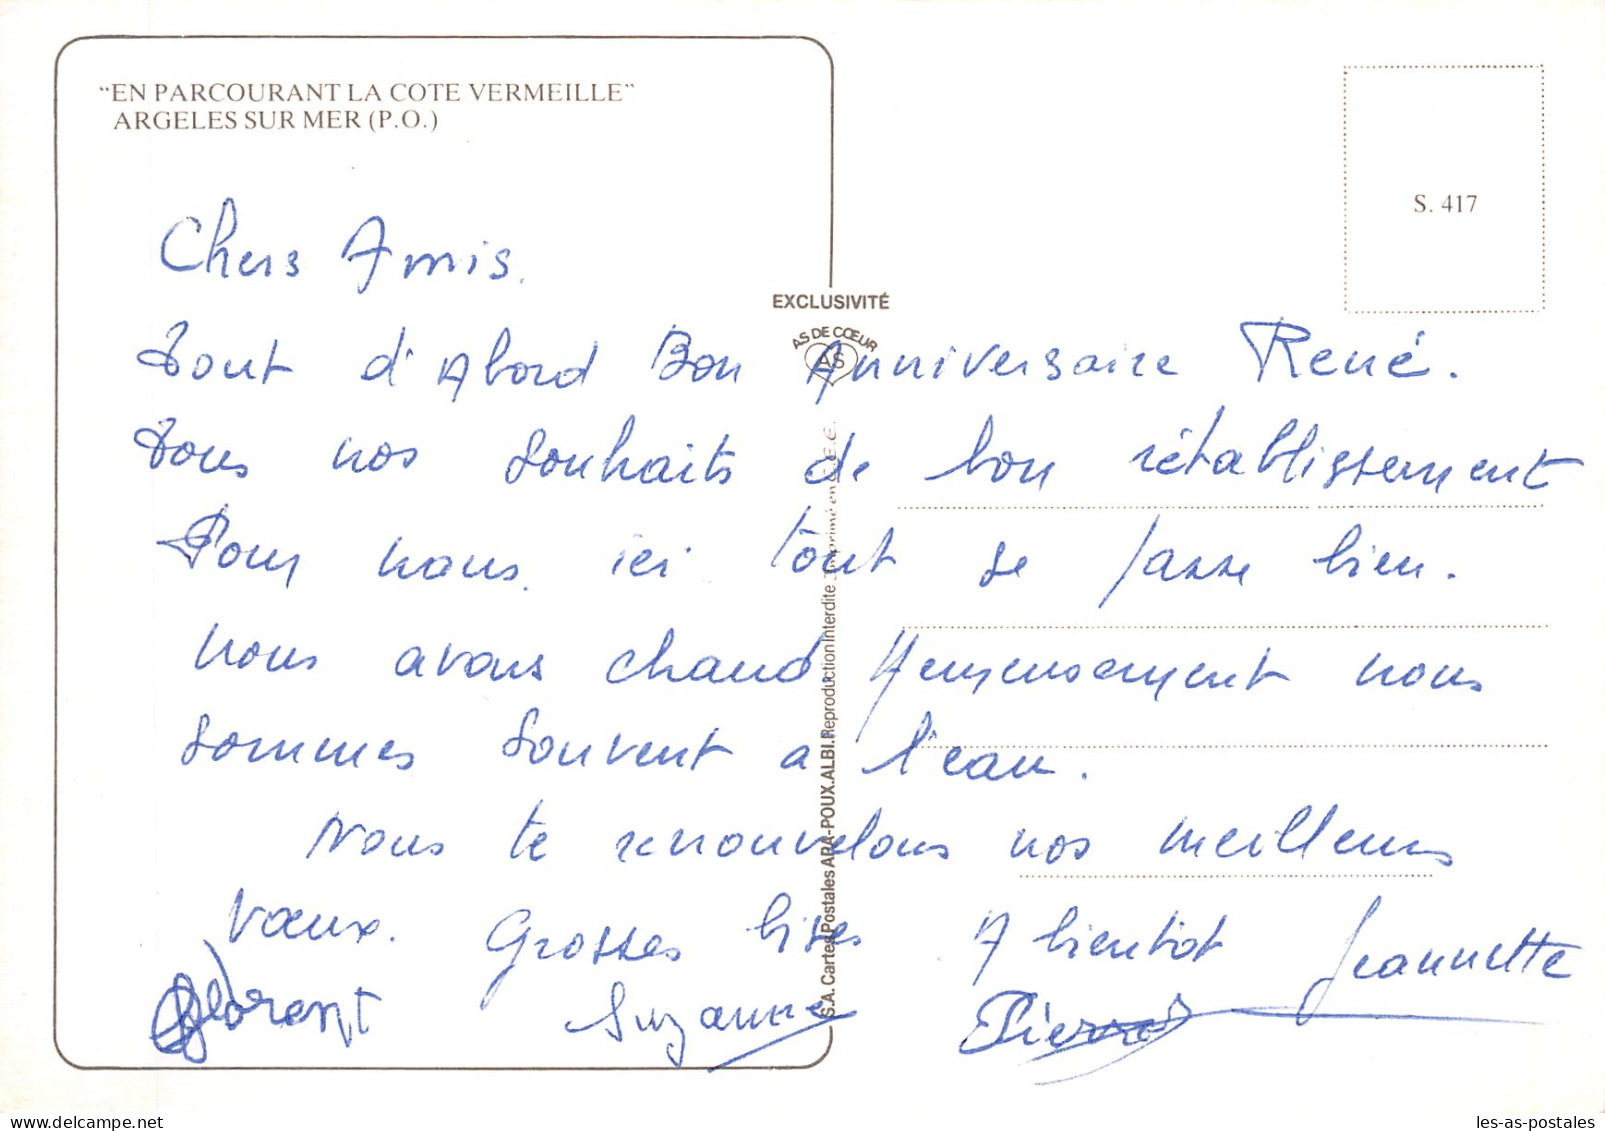 “EN PARCOURANT LA COTE VERMEILLE”
ARGELES SUR MER (P.O.)
S. 417
EXCLUSIVITÉ
AS DE CŒUR
AS
S.A. Cartes Postales ARA-POUX.ALBI. Reproduction Interdite Imprimé en C.E.E.
Chers Amis.
Tout d'Abord Bon Anniversaire René.
Tous nos souhaits de bon rétablissement
Pour nous. ici tout se passe bien.
nous avons chaud. Heureusement nous
sommes souvent a l'eau.
Nous te renouvelons nos meilleurs
vœux. Grosses bises A bientôt Jeannette
Florent Suzanne Pierre
delcampe.net
les-as-postales